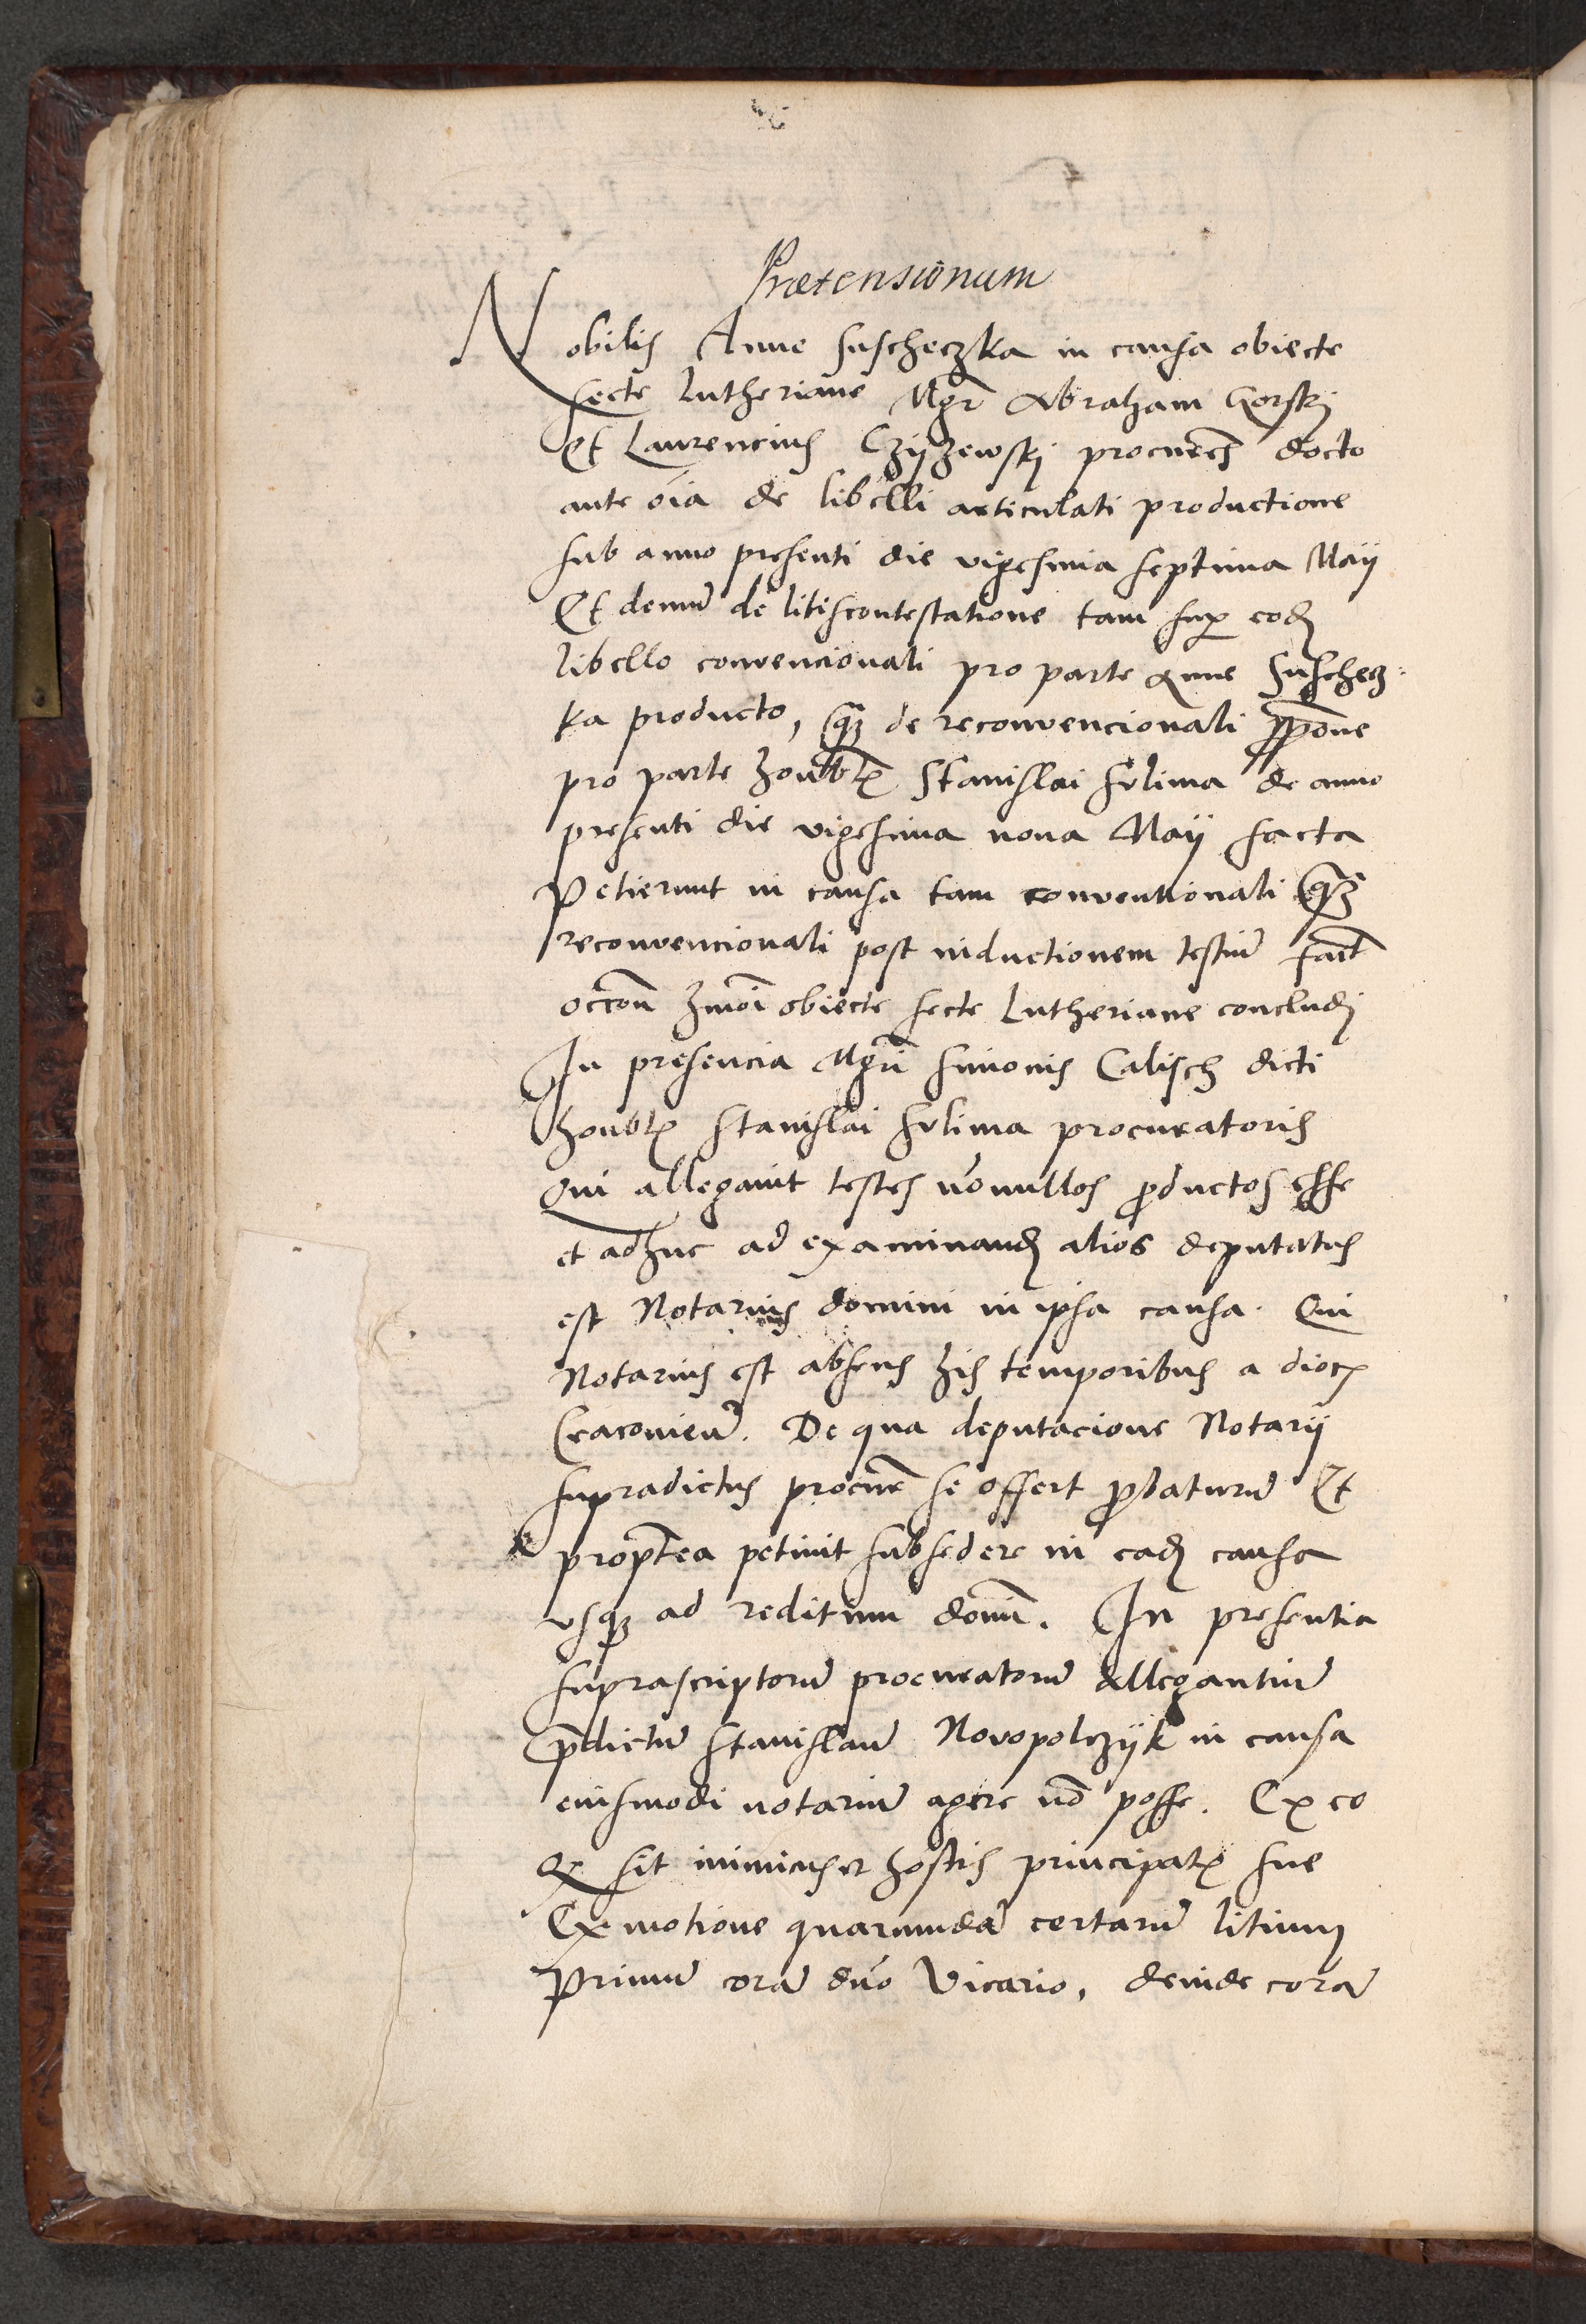 Prætensionum
Nobilis Anne Suscheczka in causa obiecte
secte Lutheriane Mgr̄ Abraham Gorskj
Et Laurencius Czyżewskj procur̄es docto
ante oīa de libelli articulati productione
sub anno presenti die vigesima septima Maij
Et demū de litiscontestatione tam sup eod
libello convencionali pro parte Anne Suschecz
ka producto, q̄ȝ de reconvencionali
pro parte honēbl Stanislai Srlima de anno
presenti die vigesima nona Maij facta
Petierunt in causa tam conventionali q̄ȝ
reconvencionali post inductionem testiū fact
occōn hmōi obiecte secte Lutheriane concludj
In presencia Mgrī Simonis Calisch dicti
honbl Stanislai Srlima procuratoris
Qui allegauit testes nōnullos productos esse
et adhuc ad examinand alios deputatus
est Notarius domini in ipsa causa. Qui
Notarius est absens his temporibus a dioc
Cracovien̄. De qua deputacione Notarij
supradictus procur̄ se offert probaturū Et
propterea petiuit subsedere in ead causa
vsqȝ ad reditum domī. In presentia
suprascriptorū procuratorū allegantiū
p̄dictū Stanislaū Novopolczyk in causa
eiusmodi notariū agere nō posse. Ex eo
q sit inimicus et hostis principal sue
Ex motione quarundā certarū litium
Primū corā dn̄o Vicario, deinde corā